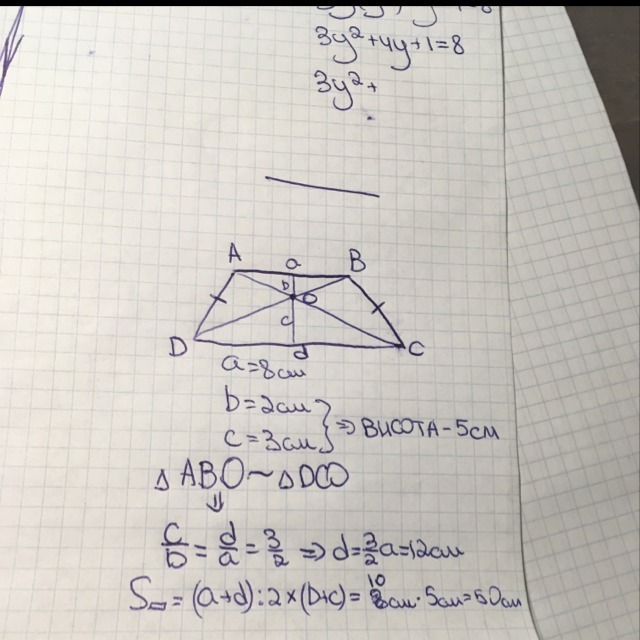 3y²+4y+1=8
3y²+
A a B
b O
c
D d C
a=8см
b=2см
c=3см } ⇒ ВИСОТА-5СМ
△ABO~△DCO
⇓
c/b = d/a = 3/2 ⇒ d=3/2a=12см
S▱=(a+d):2×(b+c)= 10см·5см=50см